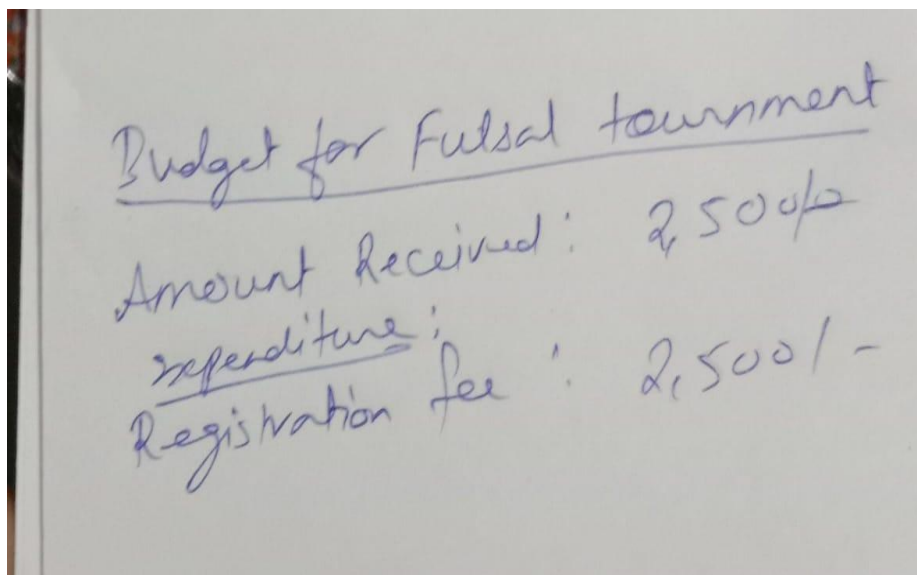 Budget for Futsal tournment
Amount Received: 2,500/-
expenditure:
Registration fee : 2,500/-